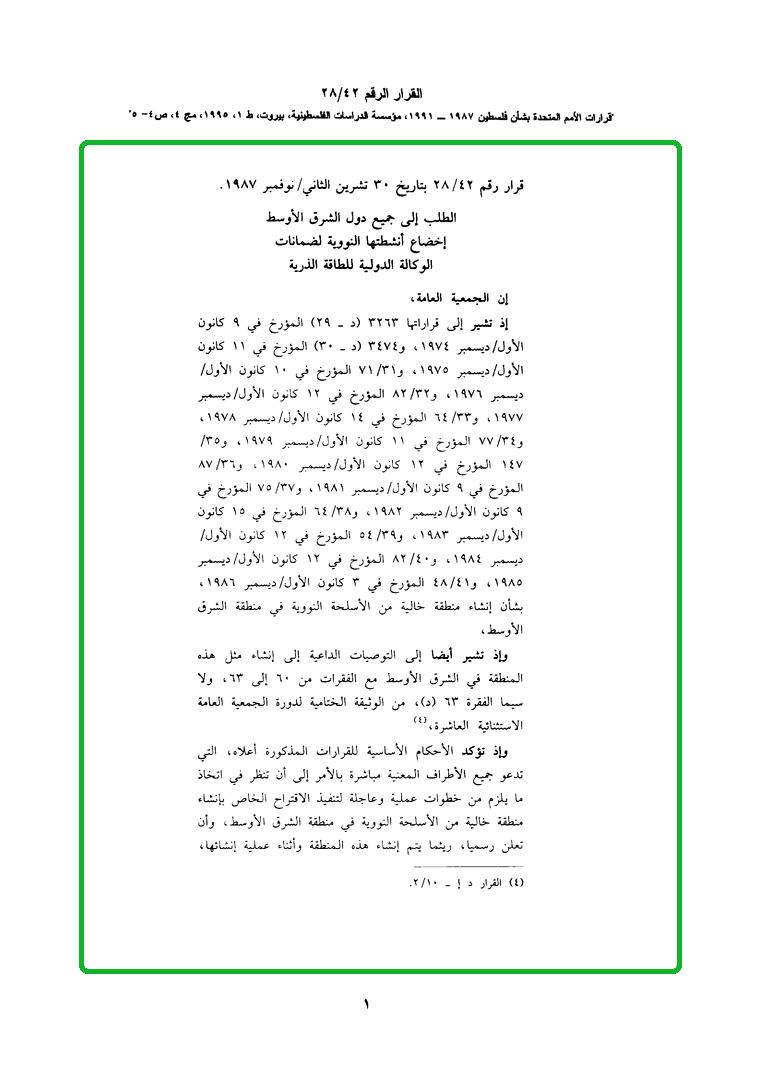 القرار الرقم ٢٨/٤٢
"قرارات الأمم المتحدة بشأن فلسطين ١٩٨٧ — ١٩٩١، مؤسسة الدراسات الفلسطينية، بيروت، ط ١، ١٩٩٥، مج ٤، ص٤- ٥"
قرار رقم ٢٨/٤٢ بتاريخ ٣٠ تشرين الثاني/نوفمبر ١٩٨٧.
الطلب إلى جميع دول الشرق الأوسط
إخضاع أنشطتها النووية لضمانات
الوكالة الدولية للطاقة الذرية
إن الجمعية العامة،
إذ تشير إلى قراراتها ٣٢٦٣ (د ـ ٢٩) المؤرخ في ٩ كانون
الأول/ديسمبر ١٩٧٤، و٣٤٧٤ (د ـ ٣٠) المؤرخ في ١١ كانون
الأول/ديسمبر ١٩٧٥، و٧١/٣١ المؤرخ في ١٠ كانون الأول/
ديسمبر ١٩٧٦، و٨٢/٣٢ المؤرخ في ١٢ كانون الأول/ديسمبر
١٩٧٧، و٦٤/٣٣ المؤرخ في ١٤ كانون الأول/ديسمبر ١٩٧٨،
و٧٧/٣٤ المؤرخ في ١١ كانون الأول/ديسمبر ١٩٧٩، و٣٥/
١٤٧ المؤرخ في ١٢ كانون الأول/ديسمبر ١٩٨٠، و٨٧/٣٦
المؤرخ في ٩ كانون الأول/ديسمبر ١٩٨١، و٧٥/٣٧ المؤرخ في
٩ كانون الأول/ديسمبر ١٩٨٢، و٦٤/٣٨ المؤرخ في ١٥ كانون
الأول/ديسمبر ١٩٨٣، و٥٤/٣٩ المؤرخ في ١٢ كانون الأول/
ديسمبر ١٩٨٤، و٨٢/٤٠ المؤرخ في ١٢ كانون الأول/ديسمبر
١٩٨٥، و٤٨/٤١ المؤرخ في ٣ كانون الأول/ديسمبر ١٩٨٦،
بشأن إنشاء منطقة خالية من الأسلحة النووية في منطقة الشرق
الأوسط،
وإذ تشير أيضا إلى التوصيات الداعية إلى إنشاء مثل هذه
المنطقة في الشرق الأوسط مع الفقرات من ٦٠ إلى ٦٣، ولا
سيما الفقرة ٦٣ (د)، من الوثيقة الختامية لدورة الجمعية العامة
الاستثنائية العاشرة،(٤)
وإذ تؤكد الأحكام الأساسية للقرارات المذكورة أعلاه، التي
تدعو جميع الأطراف المعنية مباشرة بالأمر إلى أن تنظر في اتخاذ
ما يلزم من خطوات عملية وعاجلة لتنفيذ الاقتراح الخاص بإنشاء
منطقة خالية من الأسلحة النووية في منطقة الشرق الأوسط، وأن
تعلن رسميا، ريثما يتم إنشاء هذه المنطقة وأثناء عملية إنشائها،
(٤) القرار د إ ـ ٢/١٠.
١